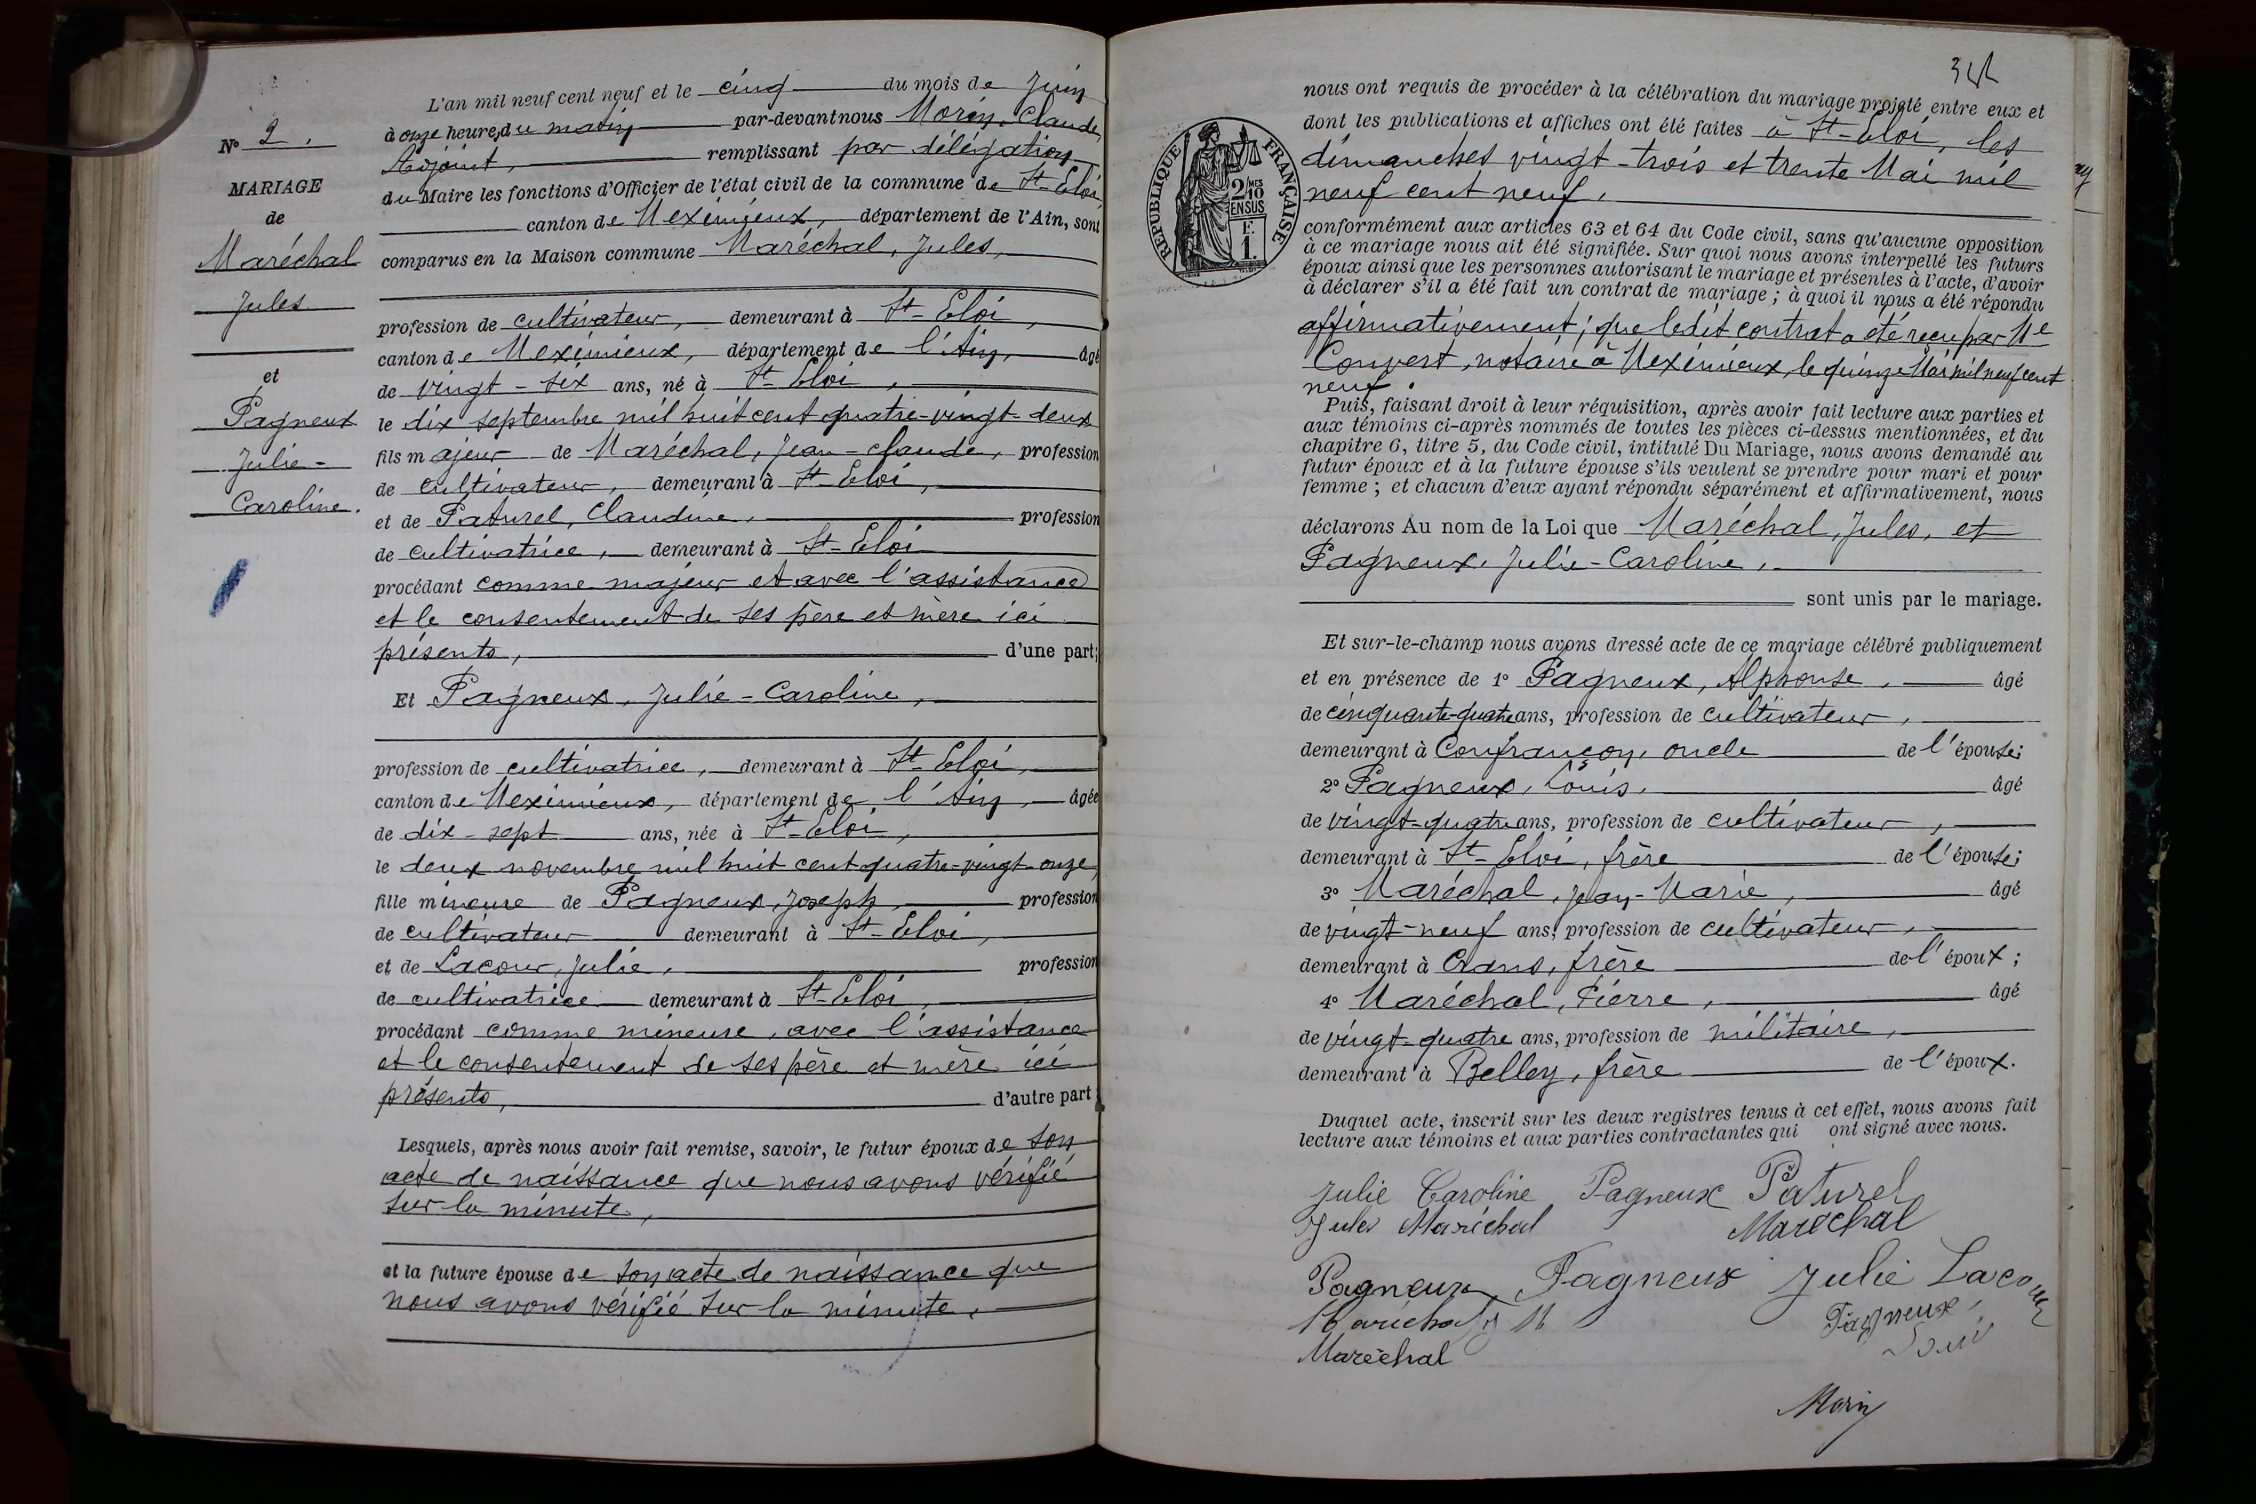 L'an mil neuf cent neuf et le cinq du mois de Juin
à onze heures du matin par-devant nous Morin, Claude,
Adjoint, remplissant par délégation
du Maire les fonctions d'Officier de l'état civil de la commune de St-Eloi,
canton de Meximieux, département de l'Ain, sont
comparus en la Maison commune Maréchal, Jules,
profession de cultivateur, demeurant à St-Eloi,
canton de Meximieux, département de l'Ain, âgé
de vingt-six ans, né à St-Eloi,
le dix septembre mil huit cent quatre-vingt-deux
fils majeur de Maréchal, Jean-Claude, profession
de cultivateur, demeurant à St-Eloi,
et de Paturel, Claudine, profession
de cultivatrice, demeurant à St-Eloi
procédant comme majeur et avec l'assistance
et le consentement de ses père et mère ici
présents, d'une part;
Et Pagneux, Julie-Caroline,
profession de cultivatrice, demeurant à St-Eloi,
canton de Meximieux, département de l'Ain, âgée
de dix-sept ans, née à St-Eloi,
le deux novembre mil huit cent quatre-vingt-onze,
fille mineure de Pagneux, Joseph, profession
de cultivateur demeurant à St-Eloi,
et de Lacour, Julie, profession
de cultivatrice demeurant à St-Eloi,
procédant comme mineure, avec l'assistance
et le consentement de ses père et mère ici
présents, d'autre part;
Lesquels, après nous avoir fait remise, savoir, le futur époux de son
acte de naissance que nous avons vérifié
sur la minute,
et la future épouse de son acte de naissance que
nous avons vérifié sur la minute,
N° 2.
MARIAGE
de
Maréchal
Jules
et
Pagneux
Julie-
Caroline.
nous ont requis de procéder à la célébration du mariage projeté entre eux et
dont les publications et affiches ont été faites à St-Eloi, les
dimanches vingt-trois et trente Mai mil
neuf cent neuf,
RÉPUBLIQUE FRANÇAISE
2/10 MES
EN SUS
F.
1.
conformément aux articles 63 et 64 du Code civil, sans qu'aucune opposition
à ce mariage nous ait été signifiée. Sur quoi nous avons interpellé les futurs
époux ainsi que les personnes autorisant le mariage et présentes à l'acte, d'avoir
à déclarer s'il a été fait un contrat de mariage; à quoi il nous a été répondu
affirmativement; que ledit contrat a été reçu par Me
Convert, notaire à Meximieux, le quinze Mai mil neuf cent
neuf.
Puis, faisant droit à leur réquisition, après avoir fait lecture aux parties et
aux témoins ci-après nommés de toutes les pièces ci-dessus mentionnées, et du
chapitre 6, titre 5, du Code civil, intitulé Du Mariage, nous avons demandé au
futur époux et à la future épouse s'ils veulent se prendre pour mari et pour
femme; et chacun d'eux ayant répondu séparément et affirmativement, nous
déclarons Au nom de la Loi que Maréchal, Jules, et
Pagneux, Julie-Caroline,
sont unis par le mariage.
Et sur-le-champ nous avons dressé acte de ce mariage célébré publiquement
et en présence de 1° Pagneux, Alphonse, âgé
de cinquante-quatre ans, profession de cultivateur,
demeurant à Confrançon, oncle de l'épouse;
2° Pagneux, Louis, âgé
de vingt-quatre ans, profession de cultivateur,
demeurant à St-Eloi, frère de l'épouse;
3° Maréchal, Jean-Marie, âgé
de vingt-neuf ans, profession de cultivateur,
demeurant à Crans, frère de l'époux;
4° Maréchal, Pierre, âgé
de vingt-quatre ans, profession de militaire,
demeurant à Belley, frère de l'époux.
Duquel acte, inscrit sur les deux registres tenus à cet effet, nous avons fait
lecture aux témoins et aux parties contractantes qui ont signé avec nous.
Julie Caroline Pagneux Paturel
Jules Maréchal Maréchal
Pagneux Pagneux Julie Lacour
Maréchal J M Pagneux
Maréchal Louis
Morin